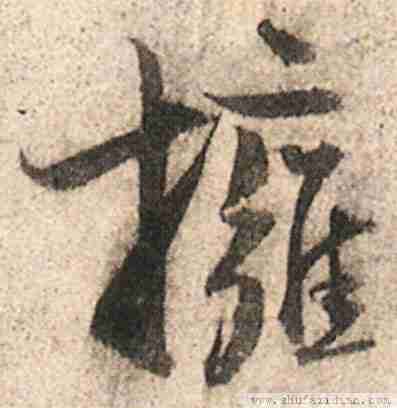 擁
www.shufazidian.com